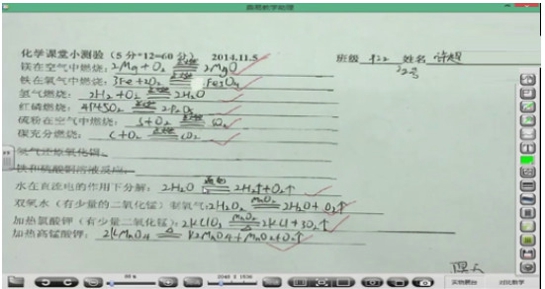 高思教学助理
化学课堂小测验（5分*12=60分） 2014.11.5 班级 初二 姓名 许超
镁在空气中燃烧: 2Mg+O₂ 点燃 2MgO 22号
铁在氧气中燃烧: 3Fe+2O₂ 点燃 Fe₃O₄
氢气燃烧: 2H₂+O₂ 点燃 2H₂O
红磷燃烧: 4P+5O₂ 点燃 2P₂O₅
硫粉在空气中燃烧: S+O₂ 点燃 SO₂
碳充分燃烧: C+O₂ 点燃 CO₂
氢气还原氧化铜:
铁和硫酸铜溶液反应:
水在直流电的作用下分解: 2H₂O 通电 2H₂↑+O₂↑
双氧水（有少量的二氧化锰）制氧气: 2H₂O₂ MnO₂ 2H₂O+O₂↑
加热氯酸钾（有少量二氧化锰）: 2KClO₃ MnO₂ △ 2KCl+3O₂↑
加热高锰酸钾: 2KMnO₄ △ K₂MnO₄+MnO₂+O₂↑
2048 X 1536
实物展台 对比教学